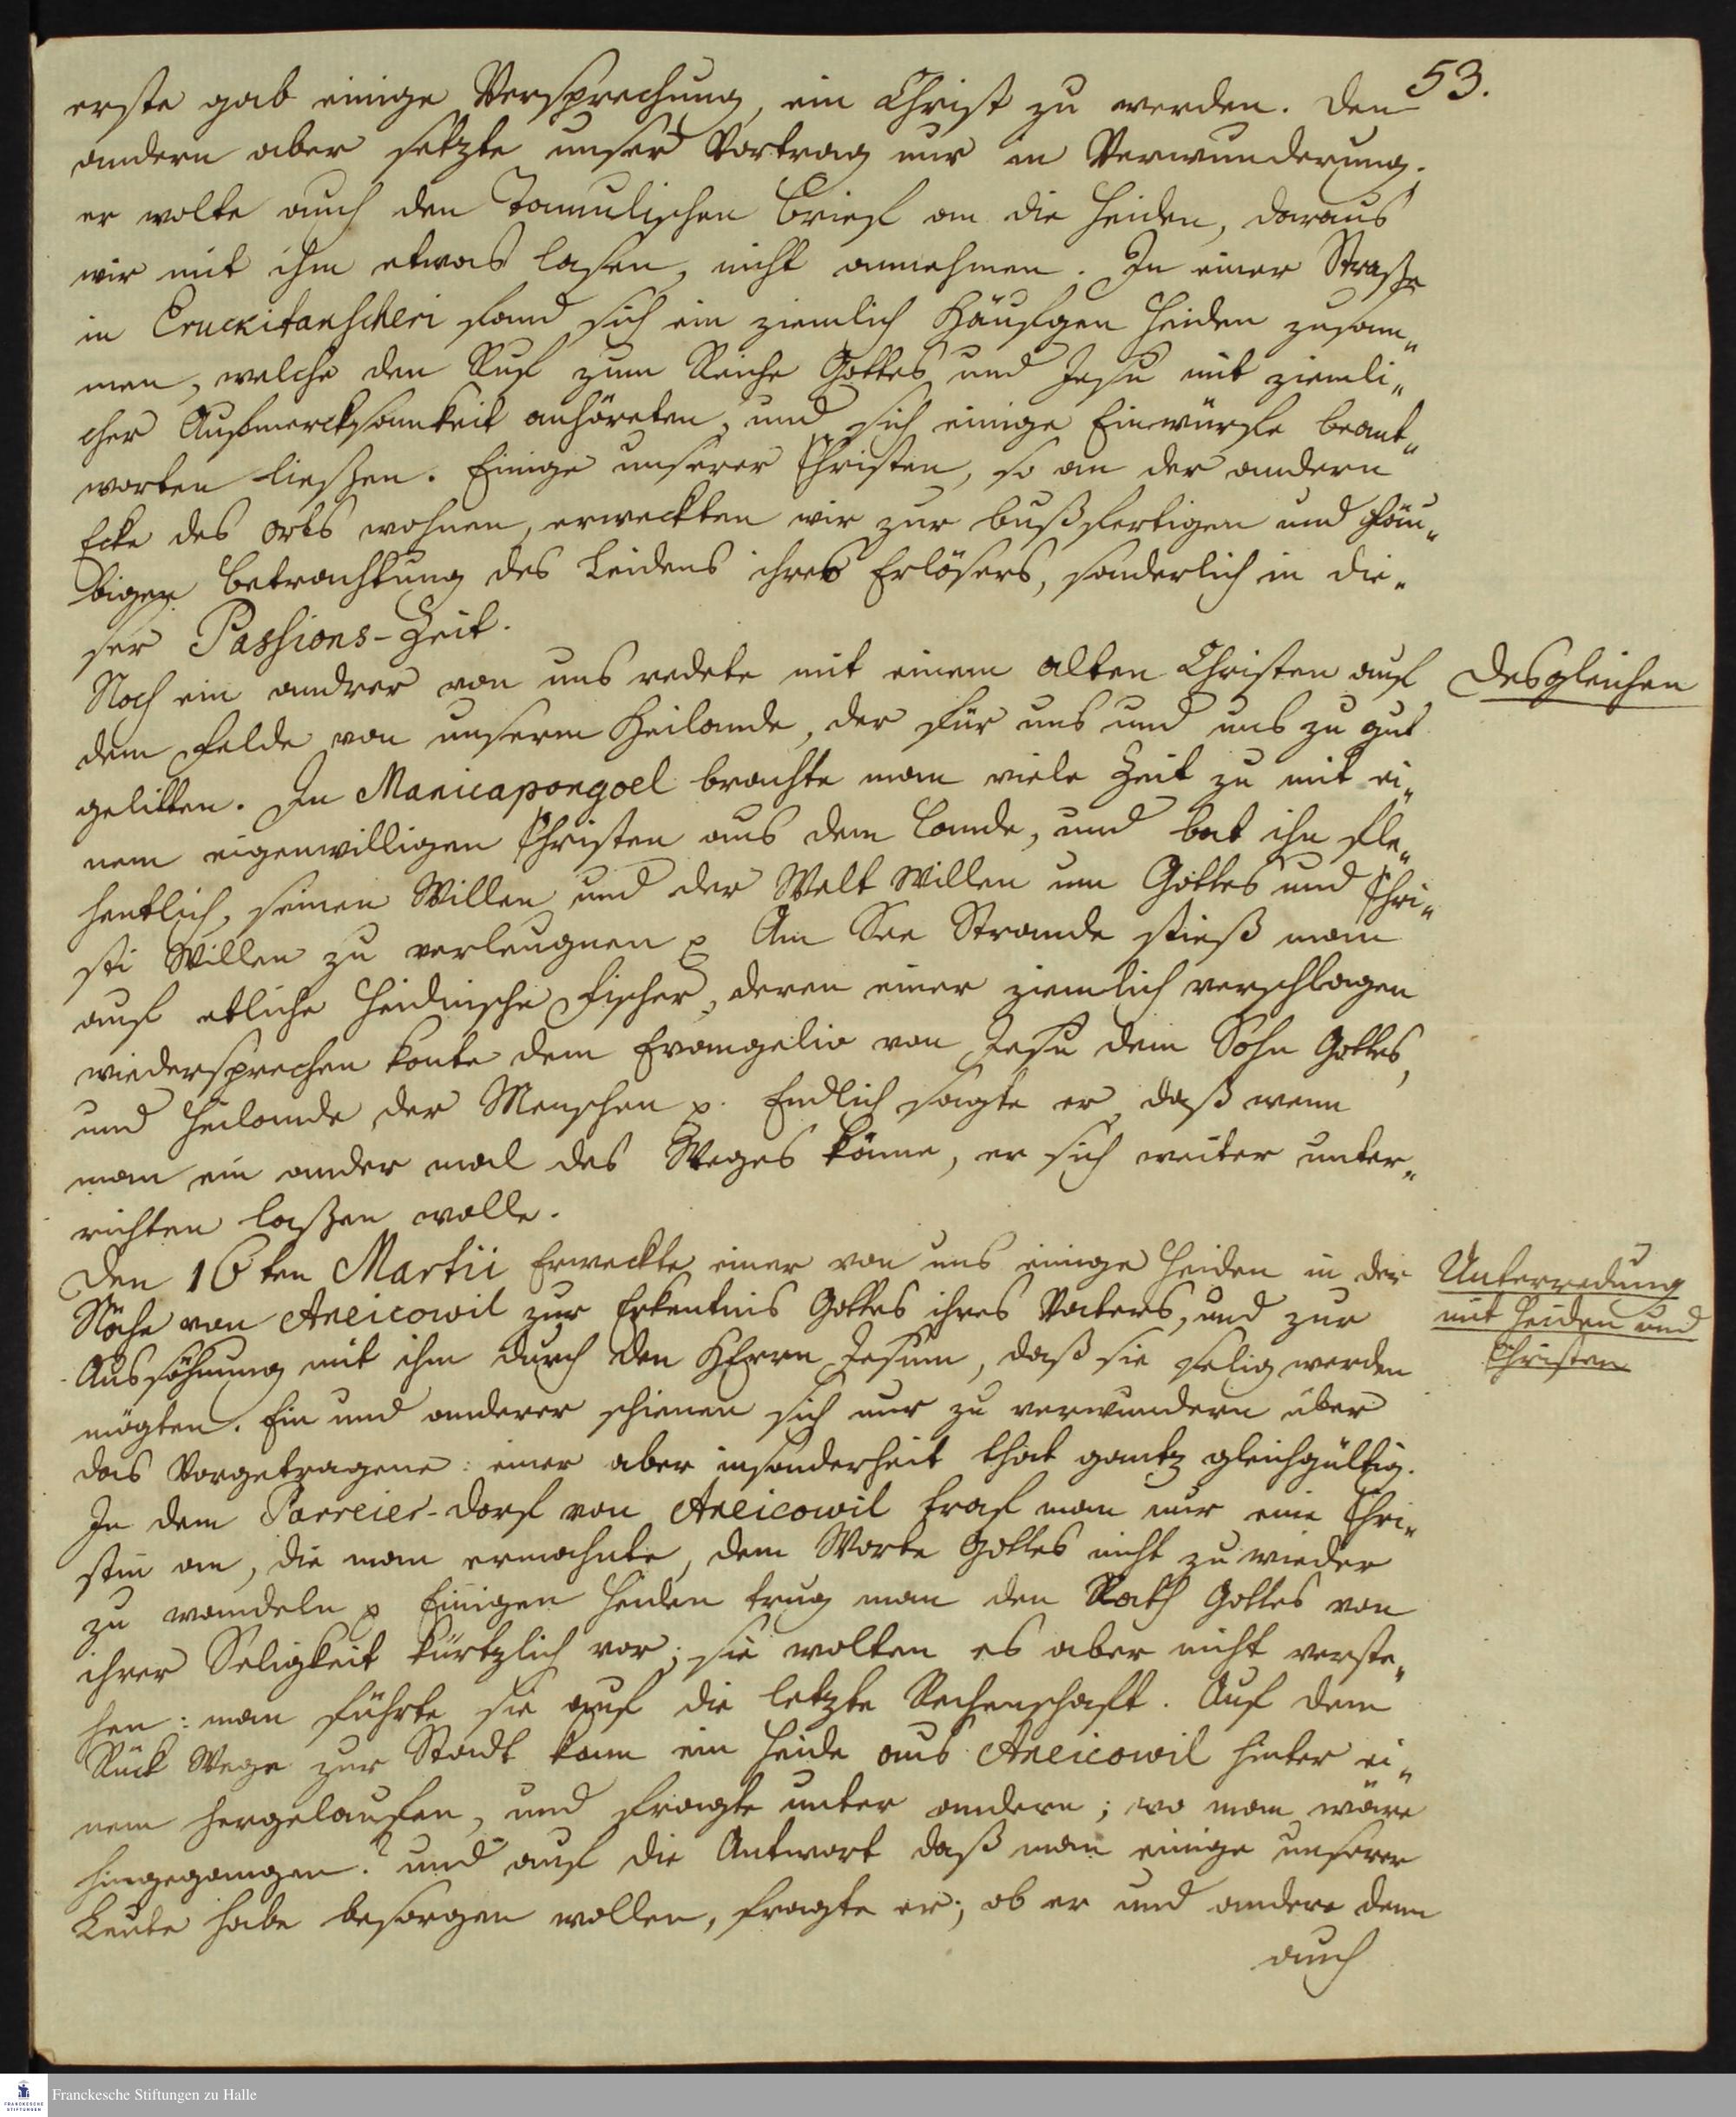 53.
erste gab einige Versprechung, ein Christ zu werden. Den
andern aber setzte unser Vortrag nur in Verwunderung.
er wolte auch den Tamulischen Brief an die Heiden, daraus
wir mit ihm etwas lasen, nicht annehmen. In einer Straße
in Cruckitanscheri fand sich ein ziemlich Häufgen Heiden zusam„
men, welche den Ruf zum Reiche Gottes und Jesu mit ziemli„
cher Aufmercksamkeit anhöreten, und sich einige Einwürfe beant„
worten ließen. Einige unserer Christen, so an der andern
Ecke des Orts wohnen, erweckten wir zur bußfertigen und gläu„
bigen Betrachtung des Leidens ihres Erlösers, sonderlich in die„
ser Passions-Zeit.
Noch ein andrer von uns redete mit einem alten Christen auf
Desgleichen
dem Felde von unserm Heilande, der für uns und uns zu gut
gelitten. In Manicapongoel brachte man viele Zeit zu mit ei„
nem eigenwilligen Christen aus dem Lande, und bat ihn fle„
hentlich, seinen Willen und der Welt Willen um Gottes und Chri„
sti Willen zu verleugnen p Am See Strande stieß man
auf etliche Heidnische Fischer, deren einer ziemlich verschlagen
wiedersprechen konte dem Evangelio von Jesu dem Sohn Gottes,
und Heilande der Menschen p. Endlich sagte er, daß wenn
man ein ander mal des Weges käme, er sich weiter unter„
richten laßen wolle.
Den 16ten Martii Erweckte einer von uns einige Heiden in der
Unterredung
mit Heiden und
Christen
Nähe von Areicowil zur Erkentnis Gottes ihres Vaters, und zur
Aussöhnung mit ihm durch den HErrn Jesum, daß sie selig werden
mögten. Ein und anderer schienen sich nur zu verwundern über
das Vorgetragene: einer aber insonderheit that gantz gleichgültig.
In dem Parreier-Dorf von Areicowil traf man nur eine Chri„
stin an, die man ermahnte, dem Worte Gottes nicht zu wieder
zu wandeln p Einigen Heiden trug man den Rath Gottes von
ihrer Seligkeit kürtzlich vor; sie wolten es aber nicht verste„
hen: man führte sie auf die letzte Rechenschaft. Auf dem
Rück Wege zur Stadt kam ein Heide aus Areicowil hinter ei„
nem hergelaufen, und fragte unter andern; wo man wäre
hingegangen? und auf die Antwort daß man einige unserer
Leute habe besorgen wollen, fragte er; ob er und andere denn
auch
Franckesche Stiftungen zu Halle
FRANCKESCHE
STIFTUNGEN